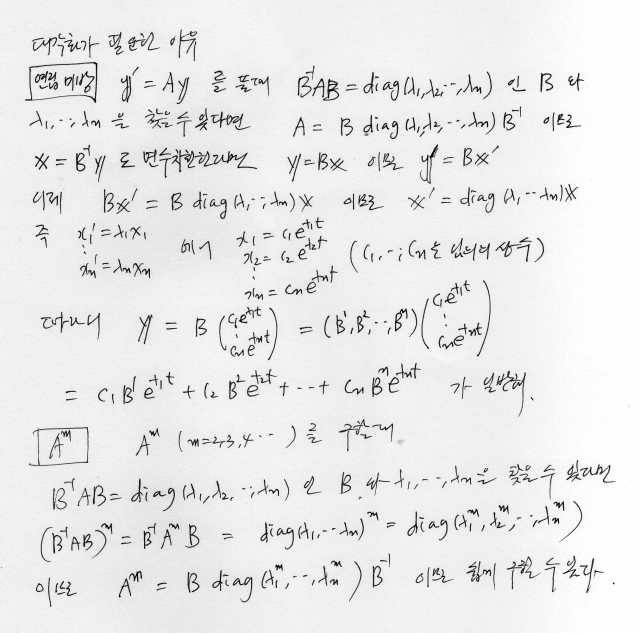 대각화가 필요한 이유
연립미방 y' = Ay 를 풀때 B⁻¹AB = diag(λ₁,λ₂,…,λₙ) 인 B 와
λ₁,…,λₙ 을 찾을 수 있다면 A = B diag(λ₁,λ₂,…,λₙ) B⁻¹ 이므로
x = B⁻¹y 로 변수치환한다면 y = Bx 이므로 y' = Bx'
이제 Bx' = B diag(λ₁,…,λₙ)x 이므로 x' = diag(λ₁,…,λₙ)x
즉 x₁' = λ₁x₁ ⋮ xₙ' = λₙxₙ 에서 x₁ = c₁e^{λ₁t} x₂ = c₂e^{λ₂t} ⋮ xₙ = cₙe^{λₙt} (c₁,…,cₙ은 임의의 상수)
따라서 y = B (c₁e^{λ₁t} ⋮ cₙe^{λₙt}) = (B¹,B²,…,Bⁿ) (c₁e^{λ₁t} ⋮ cₙe^{λₙt})
= c₁B¹e^{λ₁t} + c₂B²e^{λ₂t} + … + cₙBⁿe^{λₙt} 가 일반해.
Aᵐ Aᵐ (m=2,3,4…) 를 구할때
B⁻¹AB = diag(λ₁,λ₂,…,λₙ) 인 B 와 λ₁,…,λₙ을 찾을 수 있다면
(B⁻¹AB)ᵐ = B⁻¹AᵐB = diag(λ₁,…,λₙ)ᵐ = diag(λ₁ᵐ,λ₂ᵐ,…,λₙᵐ)
이므로 Aᵐ = B diag(λ₁ᵐ,…,λₙᵐ) B⁻¹ 이므로 쉽게 구할 수 있다.